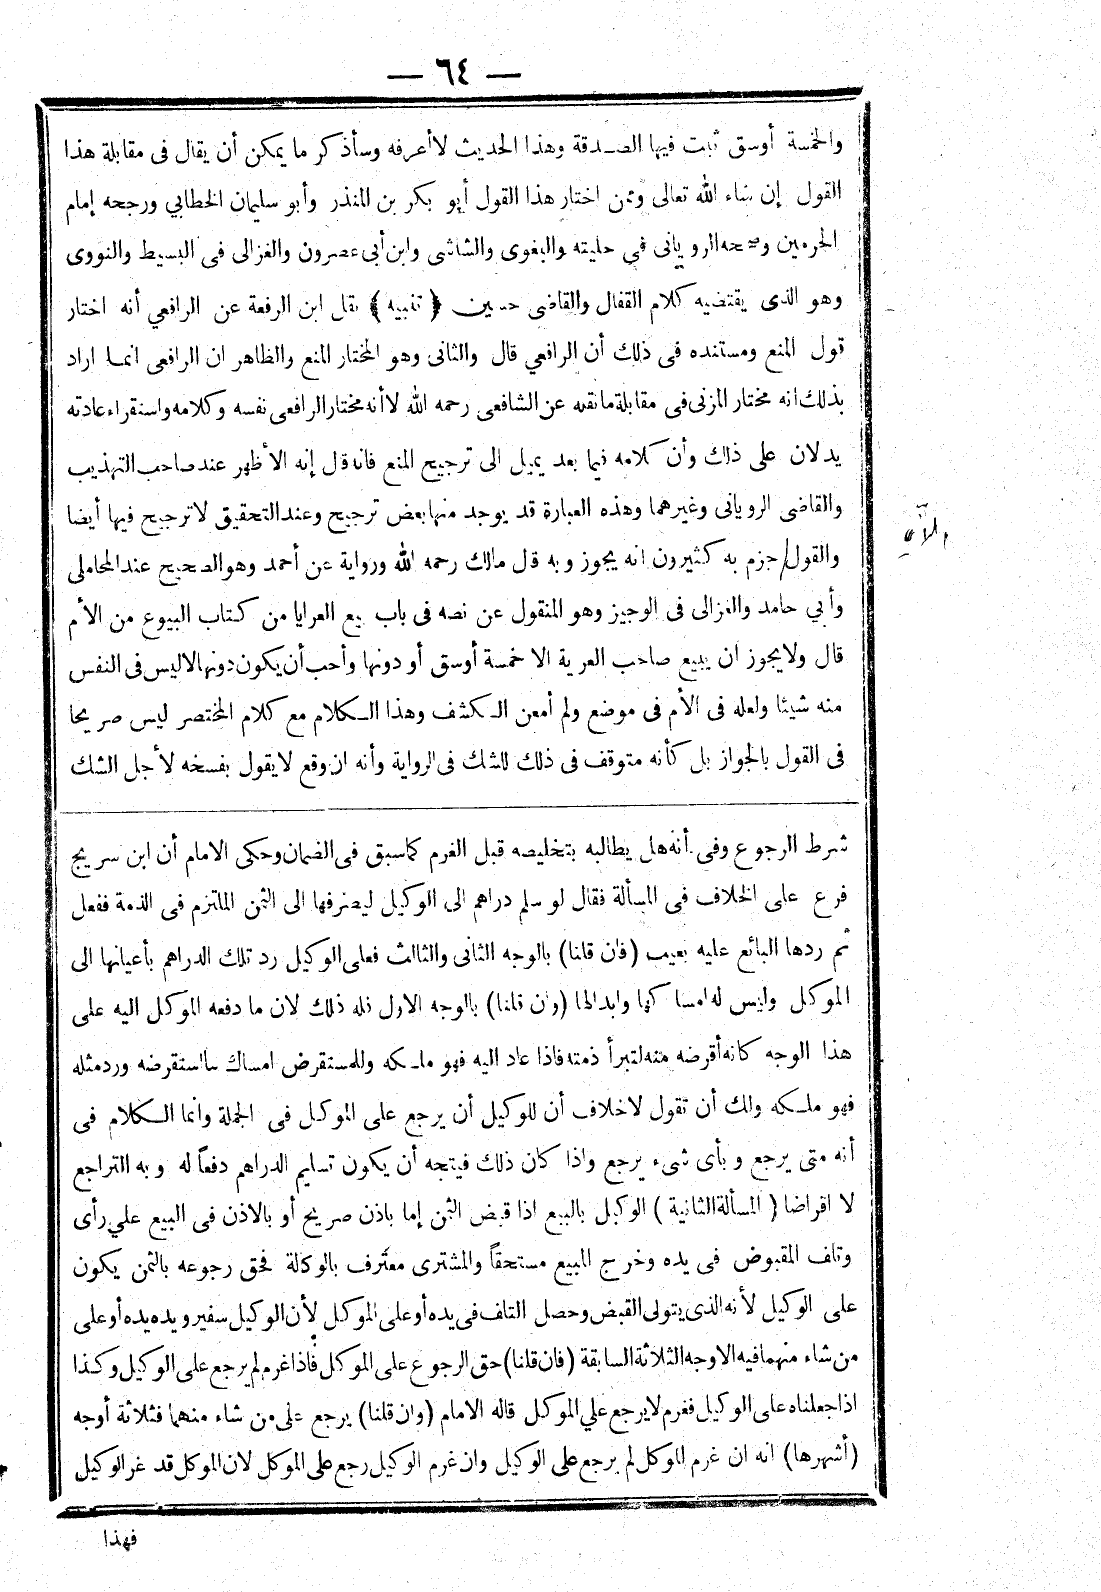 — ٦٤ —
والخمسة أوسق ثبت فيها الصدقة وهذا الحديث لا أعرفه وسأذكر ما يمكن أن يقال فى مقابلة هذا
القول إن شاء الله تعالى وممن اختار هذا القول أبو بكر بن المنذر وأبو سليمان الخطابي ورجحه إمام
الحرمين وصححه الرويانى في حليته والبغوى والشاشى وابن أبى عصرون والغزالى فى البسيط والنووى
وهو الذى يقتضيه كلام القفال والقاضى حسين ﴿ تنبيه ﴾ نقل ابن الرفعة عن الرافعي أنه اختار
قول المنع ومستنده فى ذلك أن الرافعي قال والثانى وهو المختار المنع والظاهر ان الرافعى انما اراد
بذلك انه مختار المزنى فى مقابلة مانقله عن الشافعى رحمه الله لا أنه مختار الرافعى نفسه وكلامه واستقراء عادته
يدلان على ذلك وأن كلامه فيما بعد يميل الى ترجيح المنع فانه قل إنه الأظهر عند صاحب التهذيب
والقاضى الرويانى وغيرهما وهذه العبارة قد يوجد منها بعض ترجيح وعند التحقيق لا ترجيح فيها أيضا
والقول جزم به كثيرون انه يجوز وبه قل مالك رحمه الله ورواية عن أحمد وهو الصحيح عند المحاملى
وأبي حامد والغزالى فى الوجيز وهو المنقول عن نصه فى باب بيع العرايا من كتاب البيوع من الأم
قال ولا يجوز ان يبيع صاحب العرية الا خمسة أوسق أو دونها وأحب أن يكون دونها الا ليس فى النفس
منه شيئا ولعله فى الأم فى موضع ولم أمعن الكشف وهذا الكلام مع كلام المختصر ليس صريحا
فى القول بالجواز بل كأنه متوقف فى ذلك للشك فى الرواية وأنه ان وقع لا يقول بفسخه لأجل الشك
شرط الرجوع وفى أنه هل يطالبه بتخليصه قبل الغرم كما سبق فى الضمان وحكى الامام أن ابن سريج
فرع على الخلاف فى المسألة فقال لو سلم دراهم الى الوكيل ليصرفها الى الثمن الملتزم فى الذمة ففعل
ثم ردها البائع عليه بعيب (فان قلنا) بالوجه الثانى والثالث فعلى الوكيل رد تلك الدراهم بأعيانها الى
الموكل وليس له امساكها وابدالها (وان قلنا) بالوجه الاول فله ذلك لان ما دفعه الموكل اليه على
هذا الوجه كانه أقرضه منه لتبرأ ذمته فاذا عاد اليه فهو ملكه وللمستقرض امساك ما استقرضه ورد مثله
فهو ملكه ولك أن تقول لا خلاف أن للوكيل أن يرجع على الموكل فى الجملة وانما الكلام فى
أنه متى يرجع وبأى شىء يرجع واذا كان ذلك فيتجه أن يكون تسليم الدراهم دفعاً له وبه التراجع
لا اقراضا ( المسألة الثانية ) الوكيل بالبيع اذا قبض الثمن إما باذن صريح أو بالاذن فى البيع علي رأى
وتلف المقبوض فى يده وخرج المبيع مستحقاً والمشترى معترف بالوكالة فحق رجوعه بالثمن يكون
على الوكيل لأنه الذى يتولى القبض وحصل التلف فى يده أو على الموكل لأن الوكيل سفير ويده يده أو على
من شاء منهما فيه الاوجه الثلاثة السابقة (فان قلنا) حق الرجوع على الموكل فاذا غرم لم يرجع على الوكيل وكذا
اذا جعلناه على الوكيل فغرم لا يرجع علي الموكل قاله الامام (وان قلنا) يرجع على من شاء منهما فثلاثة أوجه
(أشهرها) انه ان غرم الموكل لم يرجع على الوكيل وان غرم الوكيل رجع على الموكل لان الموكل قد غر الوكيل
فهذا